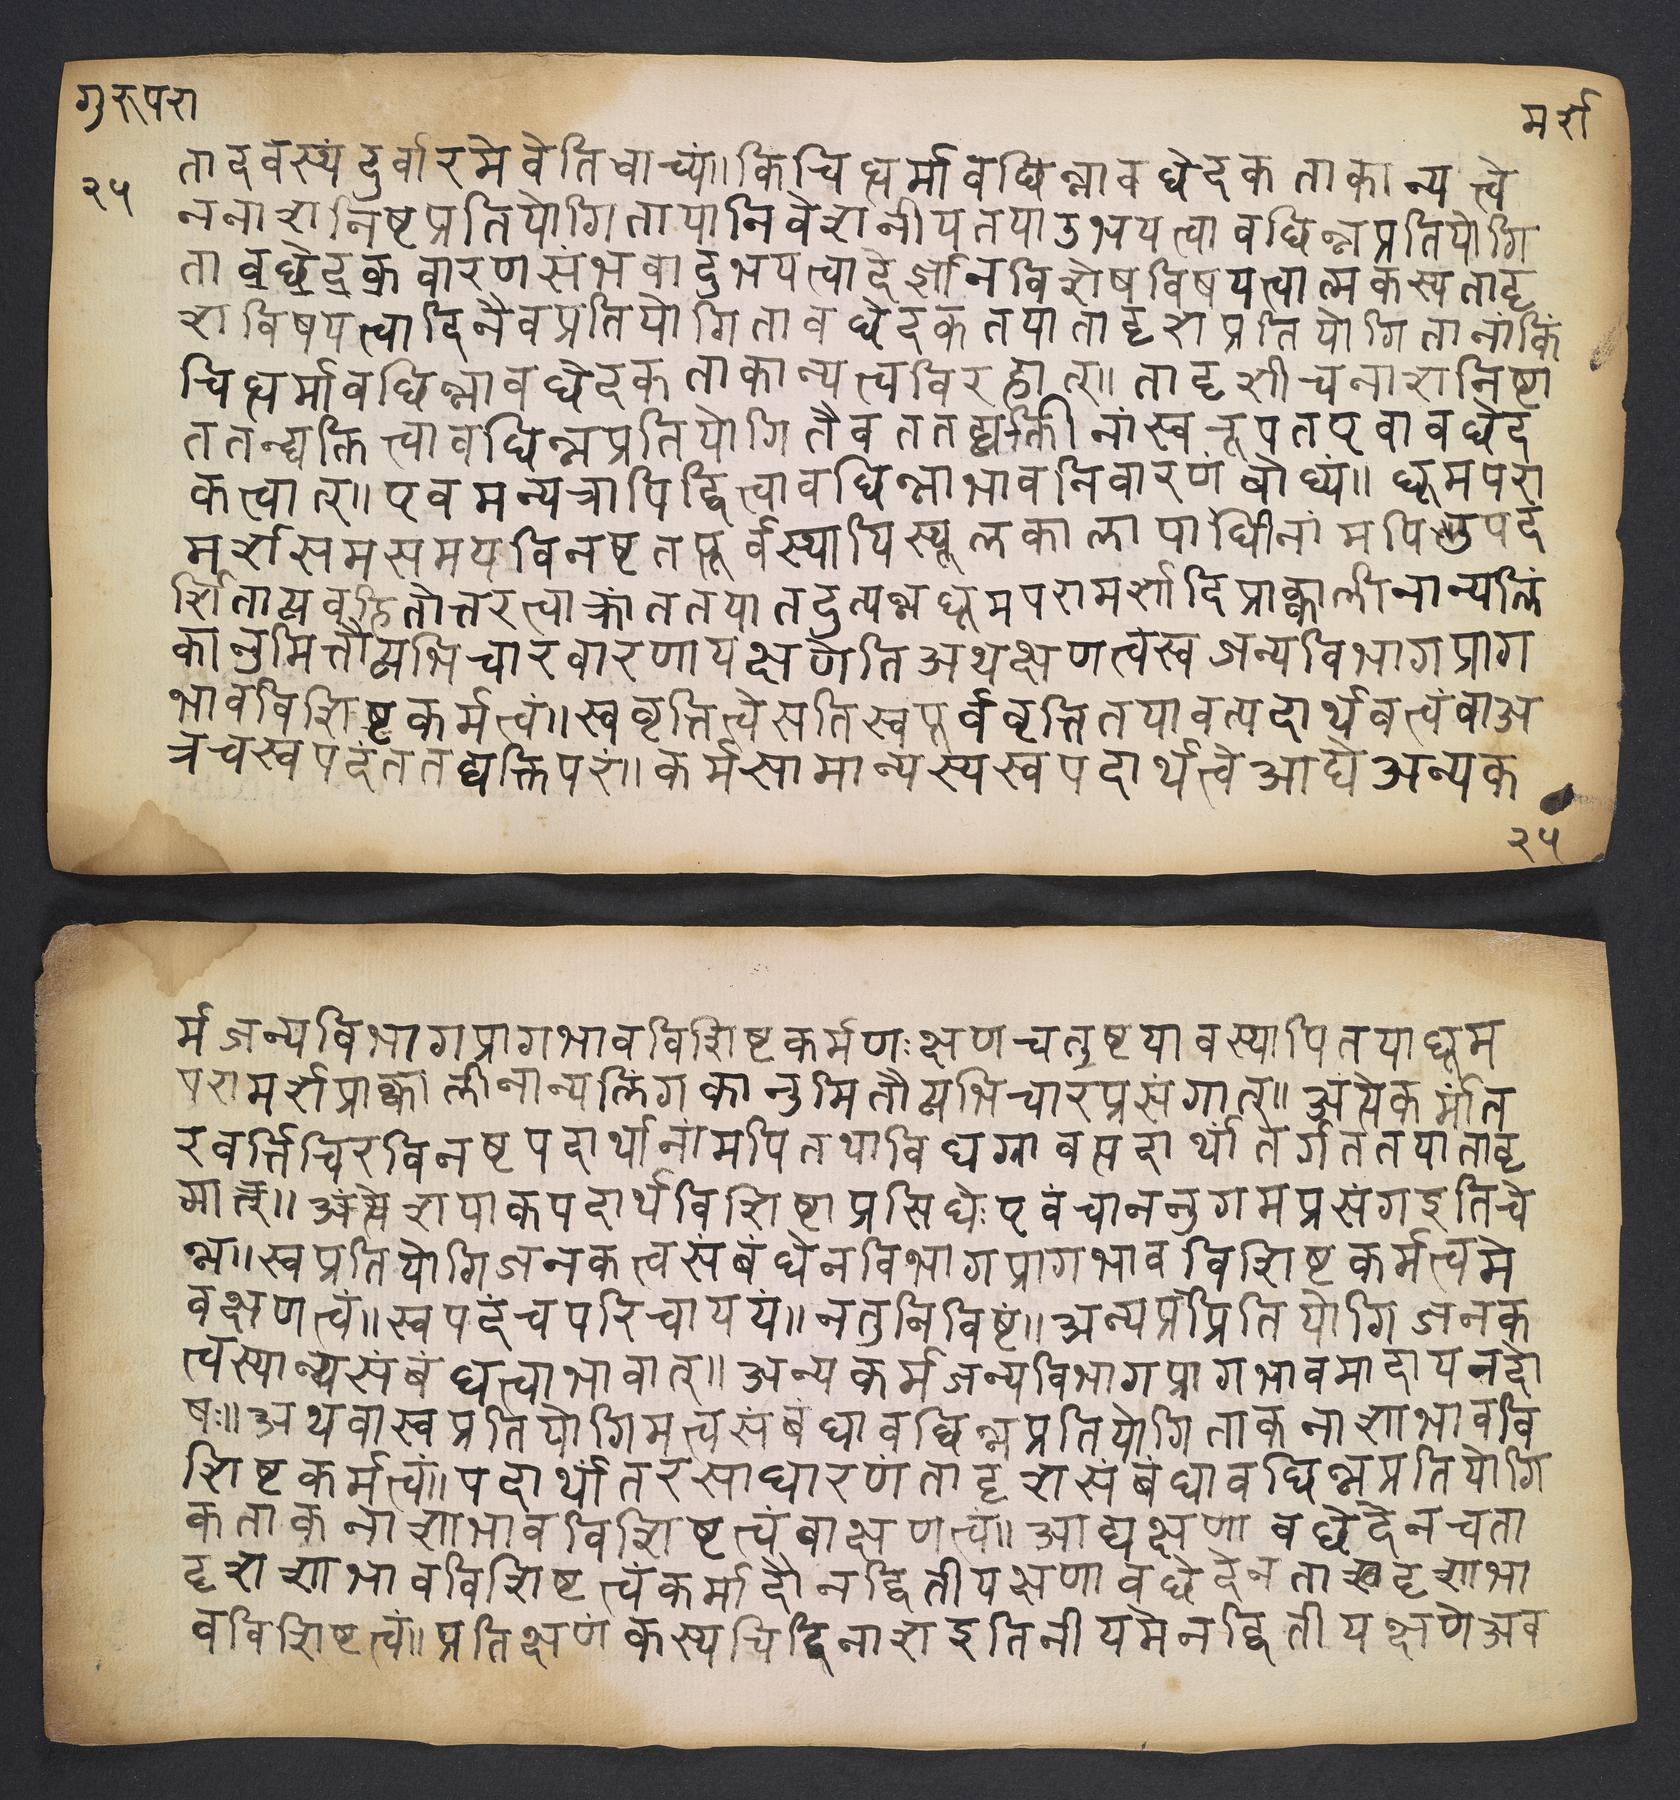 गुरूपरा
मर्श
२५
तादवस्थ्यं दुर्वारमेवेति वाच्यं॥ किंचिद्धर्मावछिन्नावछेदकताकान्यत्वे
ननाशनिष्टप्रतियोगितायानिवेशनीयतया उभयत्वावछिन्नप्रतियोगि
तावछेदकवारणसंभवादुभयत्वादेर्ज्ञानविशेषविषयत्वात्मकस्यतादृ
शविषयत्वादिनैवप्रतियोगितावछेदकतयातादृशप्रतियोगितानांकिं
चिद्धर्मावछिन्नावछेदकताकान्यत्वविरहात्॥ तादृशीचनाशनिष्टा
ततन्द्यक्तित्वावछिन्नप्रतियोगितैवततद्यक्तीनांस्वरूपतएवावछेद
कत्वात्॥ एवमन्यत्रापिद्वित्वावछिन्नाभावनिवारणंबोध्यं॥ धूमपरा
मर्शसमसमयविनष्टतत्पूर्वस्थायिस्थूलकालापाधीनांमपिक्षुपद
र्शिताव्यवहितोत्तरत्वाक्रांततयातदुत्पन्नधूमपरामर्शादिप्राक्कालीनान्यलिं
कानुमितौव्यभिचारवारणायक्षणेति अथक्षणत्वंस्वजन्यविभागप्राग
भावविशिष्टकर्मत्वं॥ स्ववृत्तित्वेसतिस्वपूर्ववृत्तितयावत्पदार्थवत्वंवाअ
त्रचस्वपदंततद्यक्तिपरं॥ कर्मसामान्यस्यस्वपदार्थत्वेआद्येअन्यक
२५
र्मजन्यविभागप्रागभावविशिष्टकर्मणःक्षणचतुष्टयावस्थायितयाधूम
परामर्शप्राक्कालीनान्यलिंगकानुमितौव्यभिचारप्रसंगात्॥ अंत्येकर्मांत
रवर्त्तिचिरविनष्टपदार्थानामपितथाविधयावत्पदार्थांतर्गततयातादृ
मात्र॥ अंत्येशपाकपदार्थविशिष्टाप्रसिधेःएवंचाननुगमप्रसंगइतिचे
न्न॥ स्वप्रतियोगिजनकत्वसंबंधेनविभागप्रागभावविशिष्टकर्मत्वमे
वक्षणत्वं॥ स्वपदंचपरिचाययं॥ नतुनिविष्टं॥ अन्यप्रंप्रितियोगिजनक
त्वस्यान्यसंबंधत्वाभावात्॥ अन्यकर्मजन्यविभागप्रागभावमादायनदो
षः॥ अथवास्वप्रतियोगिमत्वसंबंधावछिन्नप्रतियोगिताकनाशाभाववि
शिष्टकर्मत्वं॥ पदार्थांतरसाधारणंतादृशसंबंधावछिन्नप्रतियोगि
कताकनाशाभावविशिष्टत्वंवाक्षणत्वं॥ आद्यक्षणावछेदेनचता
दृशशाभावविशिष्टत्वंकर्मादौनद्वितीयक्षणावछेदेनताखदृशाभा
वविशिष्टत्वं॥ प्रतिक्षणंकस्यचिद्विनाशइतिनीयमेनद्वितीयक्षणेअव